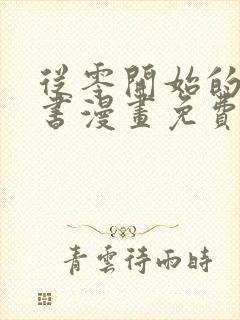 從零開始的
書漫畫免費
青雲待雨時